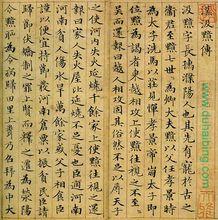 漢汲黯傳
汲黯字長孺濮陽人也其先有寵於古之
衛君至黯七世世為卿大夫黯以父任孝景時
為太子洗馬以莊見憚孝景帝崩太子即
位黯為謁者東越相攻上使黯往視之不至至吳
而還報曰越人相攻固其俗然不足以辱天子
之使河内失火延燒千餘家上使黯往視之還
報曰家人失火屋比延燒不足憂也臣過河南
河南貧人傷水旱萬餘家或父子相食臣
謹以便宜持節發河南倉粟以振貧民臣請
歸節伏矯制之罪上賢而釋之遷為滎陽
令黯恥為令病歸田里上聞乃召拜為中大
www.dinabing.com